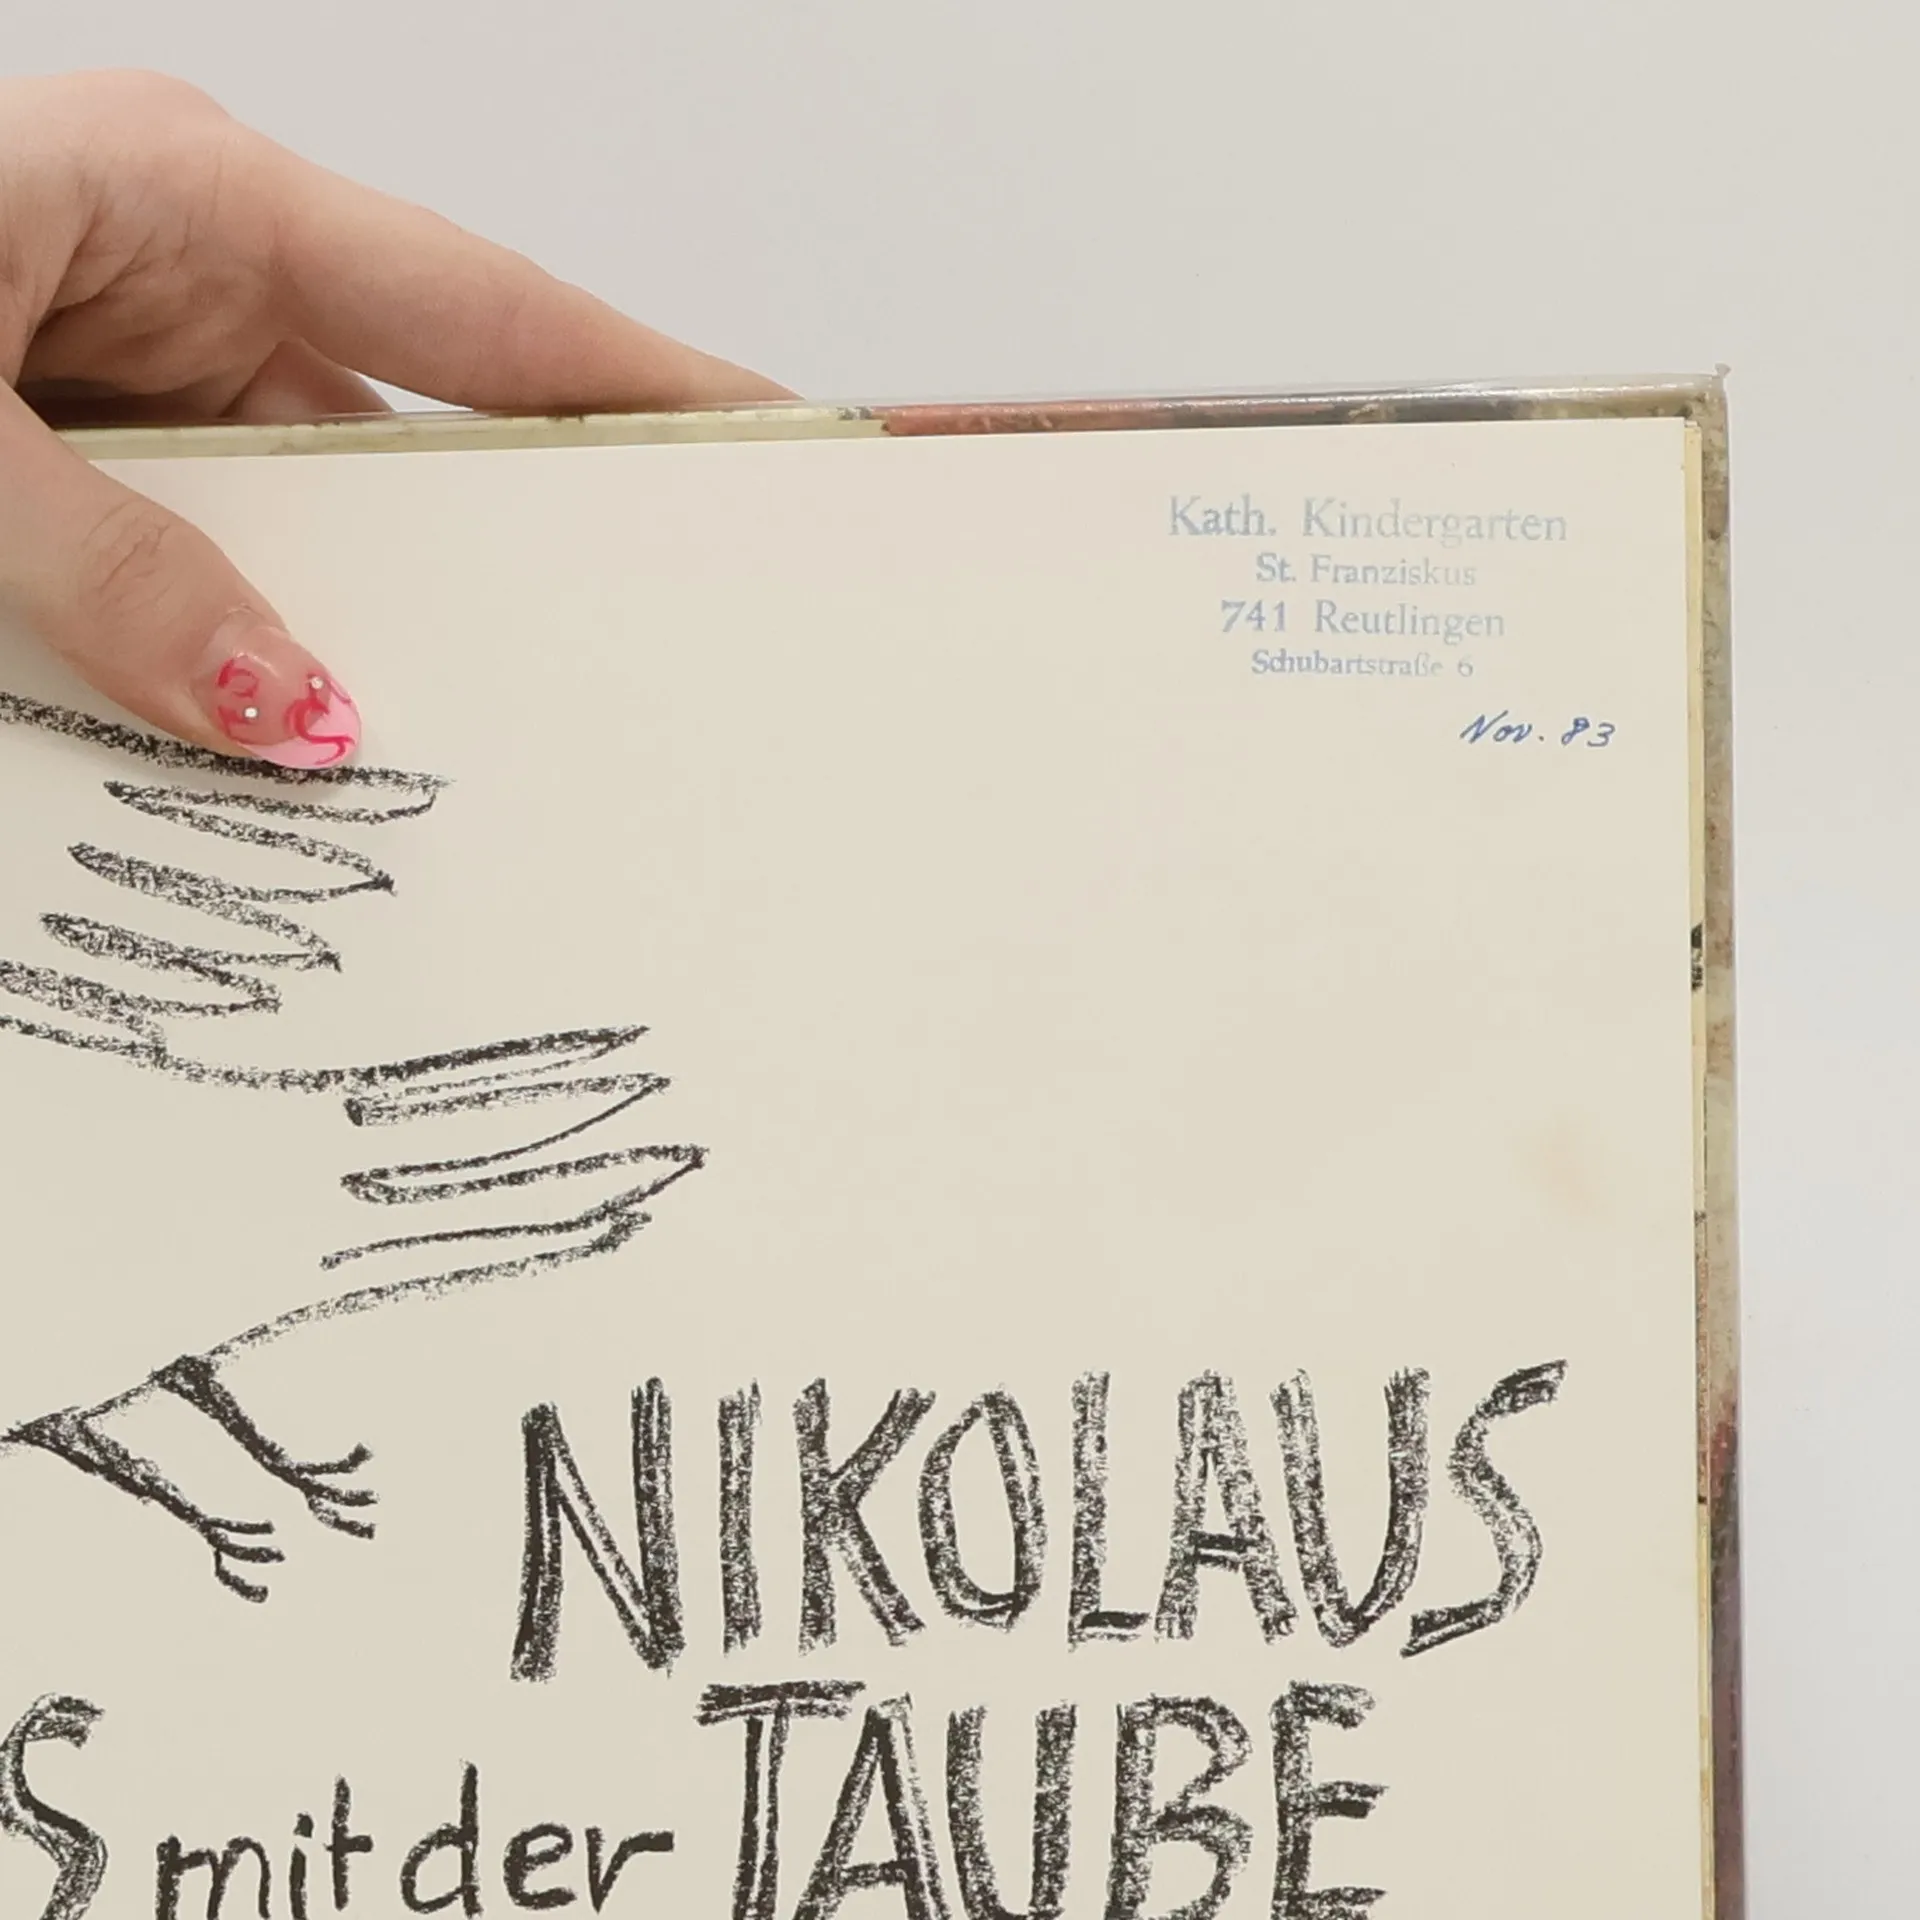 Kath. Kindergarten
St. Franziskus
741 Reutlingen
Schubartstraße 6
Nov. 83
NIKOLAUS
S mit der TAUBE